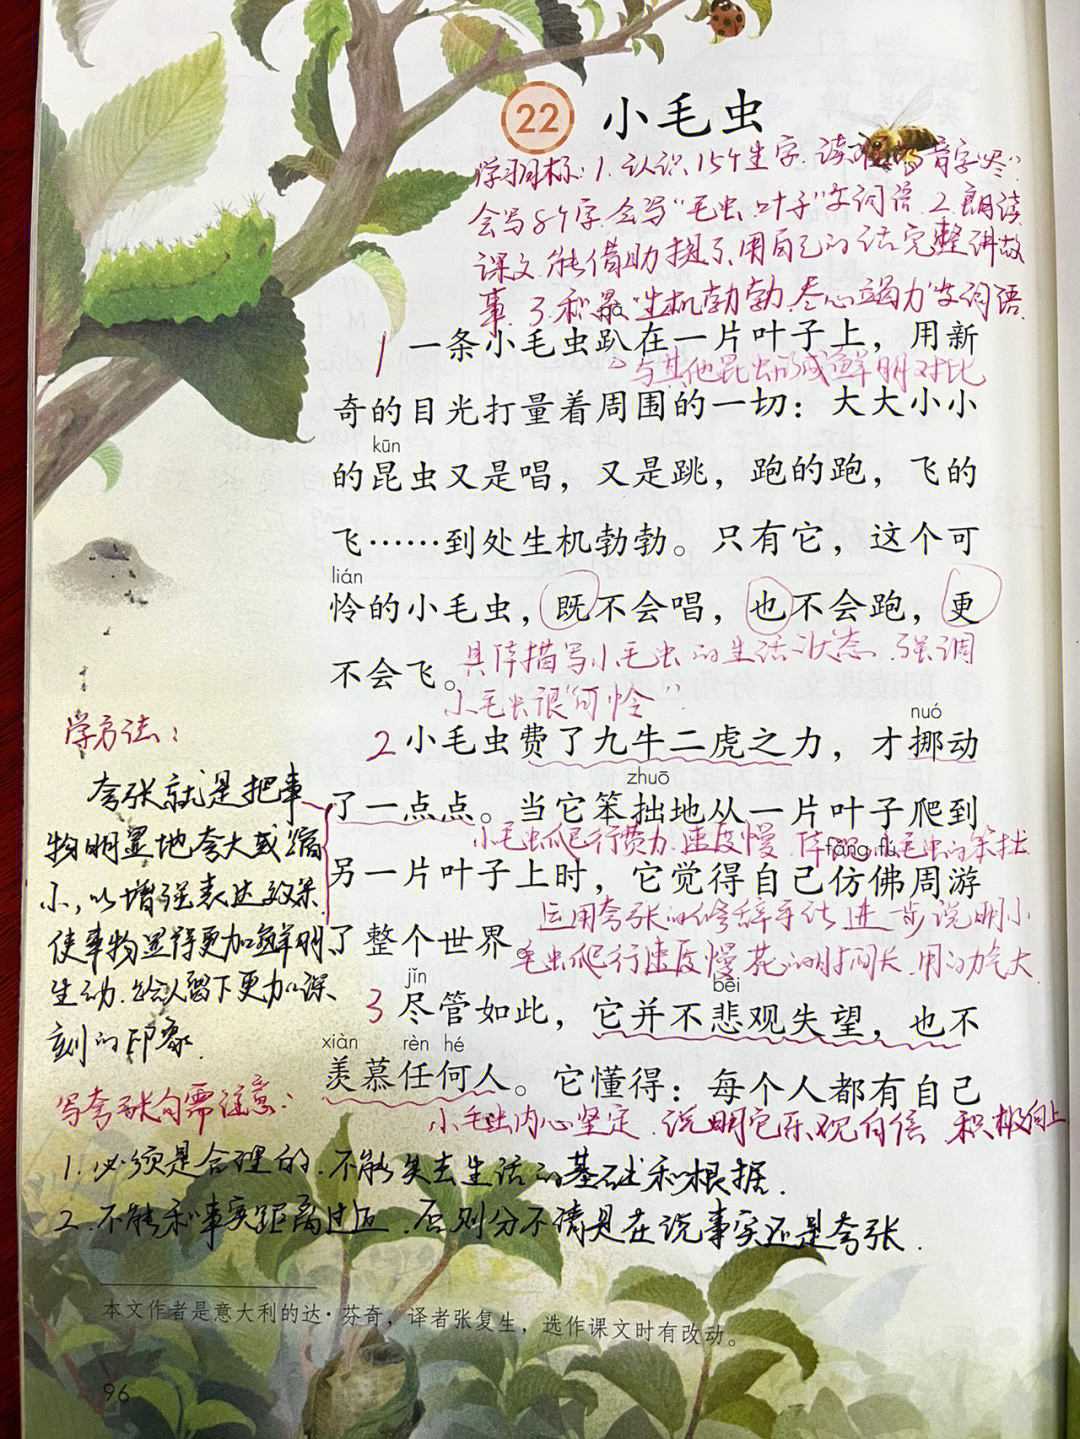 22 小毛虫
学习目标:1.认识15个生字.读准多音字"尽".
会写8个字.会写"毛虫.叶子"等词语.2.朗读
课文.能借助提示,用自己的话完整讲故
事.3.积累"生机勃勃.尽心竭力"等词语.
1 一条小毛虫趴在一片叶子上，用新
与其他昆虫形成鲜明对比
奇的目光打量着周围的一切：大大小小
kūn
的昆虫又是唱，又是跳，跑的跑，飞的
飞……到处生机勃勃。只有它，这个可
lián
怜的小毛虫，既不会唱，也不会跑，更
不会飞。
具体描写小毛虫的生活状态.强调
小毛虫很"可怜"
nuó
2 小毛虫费了九牛二虎之力，才挪动
zhuō
了一点点。当它笨拙地从一片叶子爬到
小毛虫爬行费力.速度慢.体现小毛虫的笨拙.
fǎng fú
另一片叶子上时，它觉得自己仿佛周游
了整个世界。
运用夸张的修辞手法.进一步说明小
毛虫爬行速度慢.花的时间长.用的力气大.
jǐn bēi
3 尽管如此，它并不悲观失望，也不
xiàn rèn hé
羡慕任何人。它懂得：每个人都有自己
小毛虫内心坚定.说明它乐观自信 积极向上
学方法:
夸张就是把事
物明显地夸大或缩
小,以增强表达效果.
使事物显得更加鲜明、
生动.给人留下更加深
刻的印象.
写夸张句需注意:
1.必须是合理的.不能失去生活的基础和根据.
2.不能和事实距离过近.否则分不清是在说事实还是夸张.
本文作者是意大利的达·芬奇，译者张复生，选作课文时有改动。
96